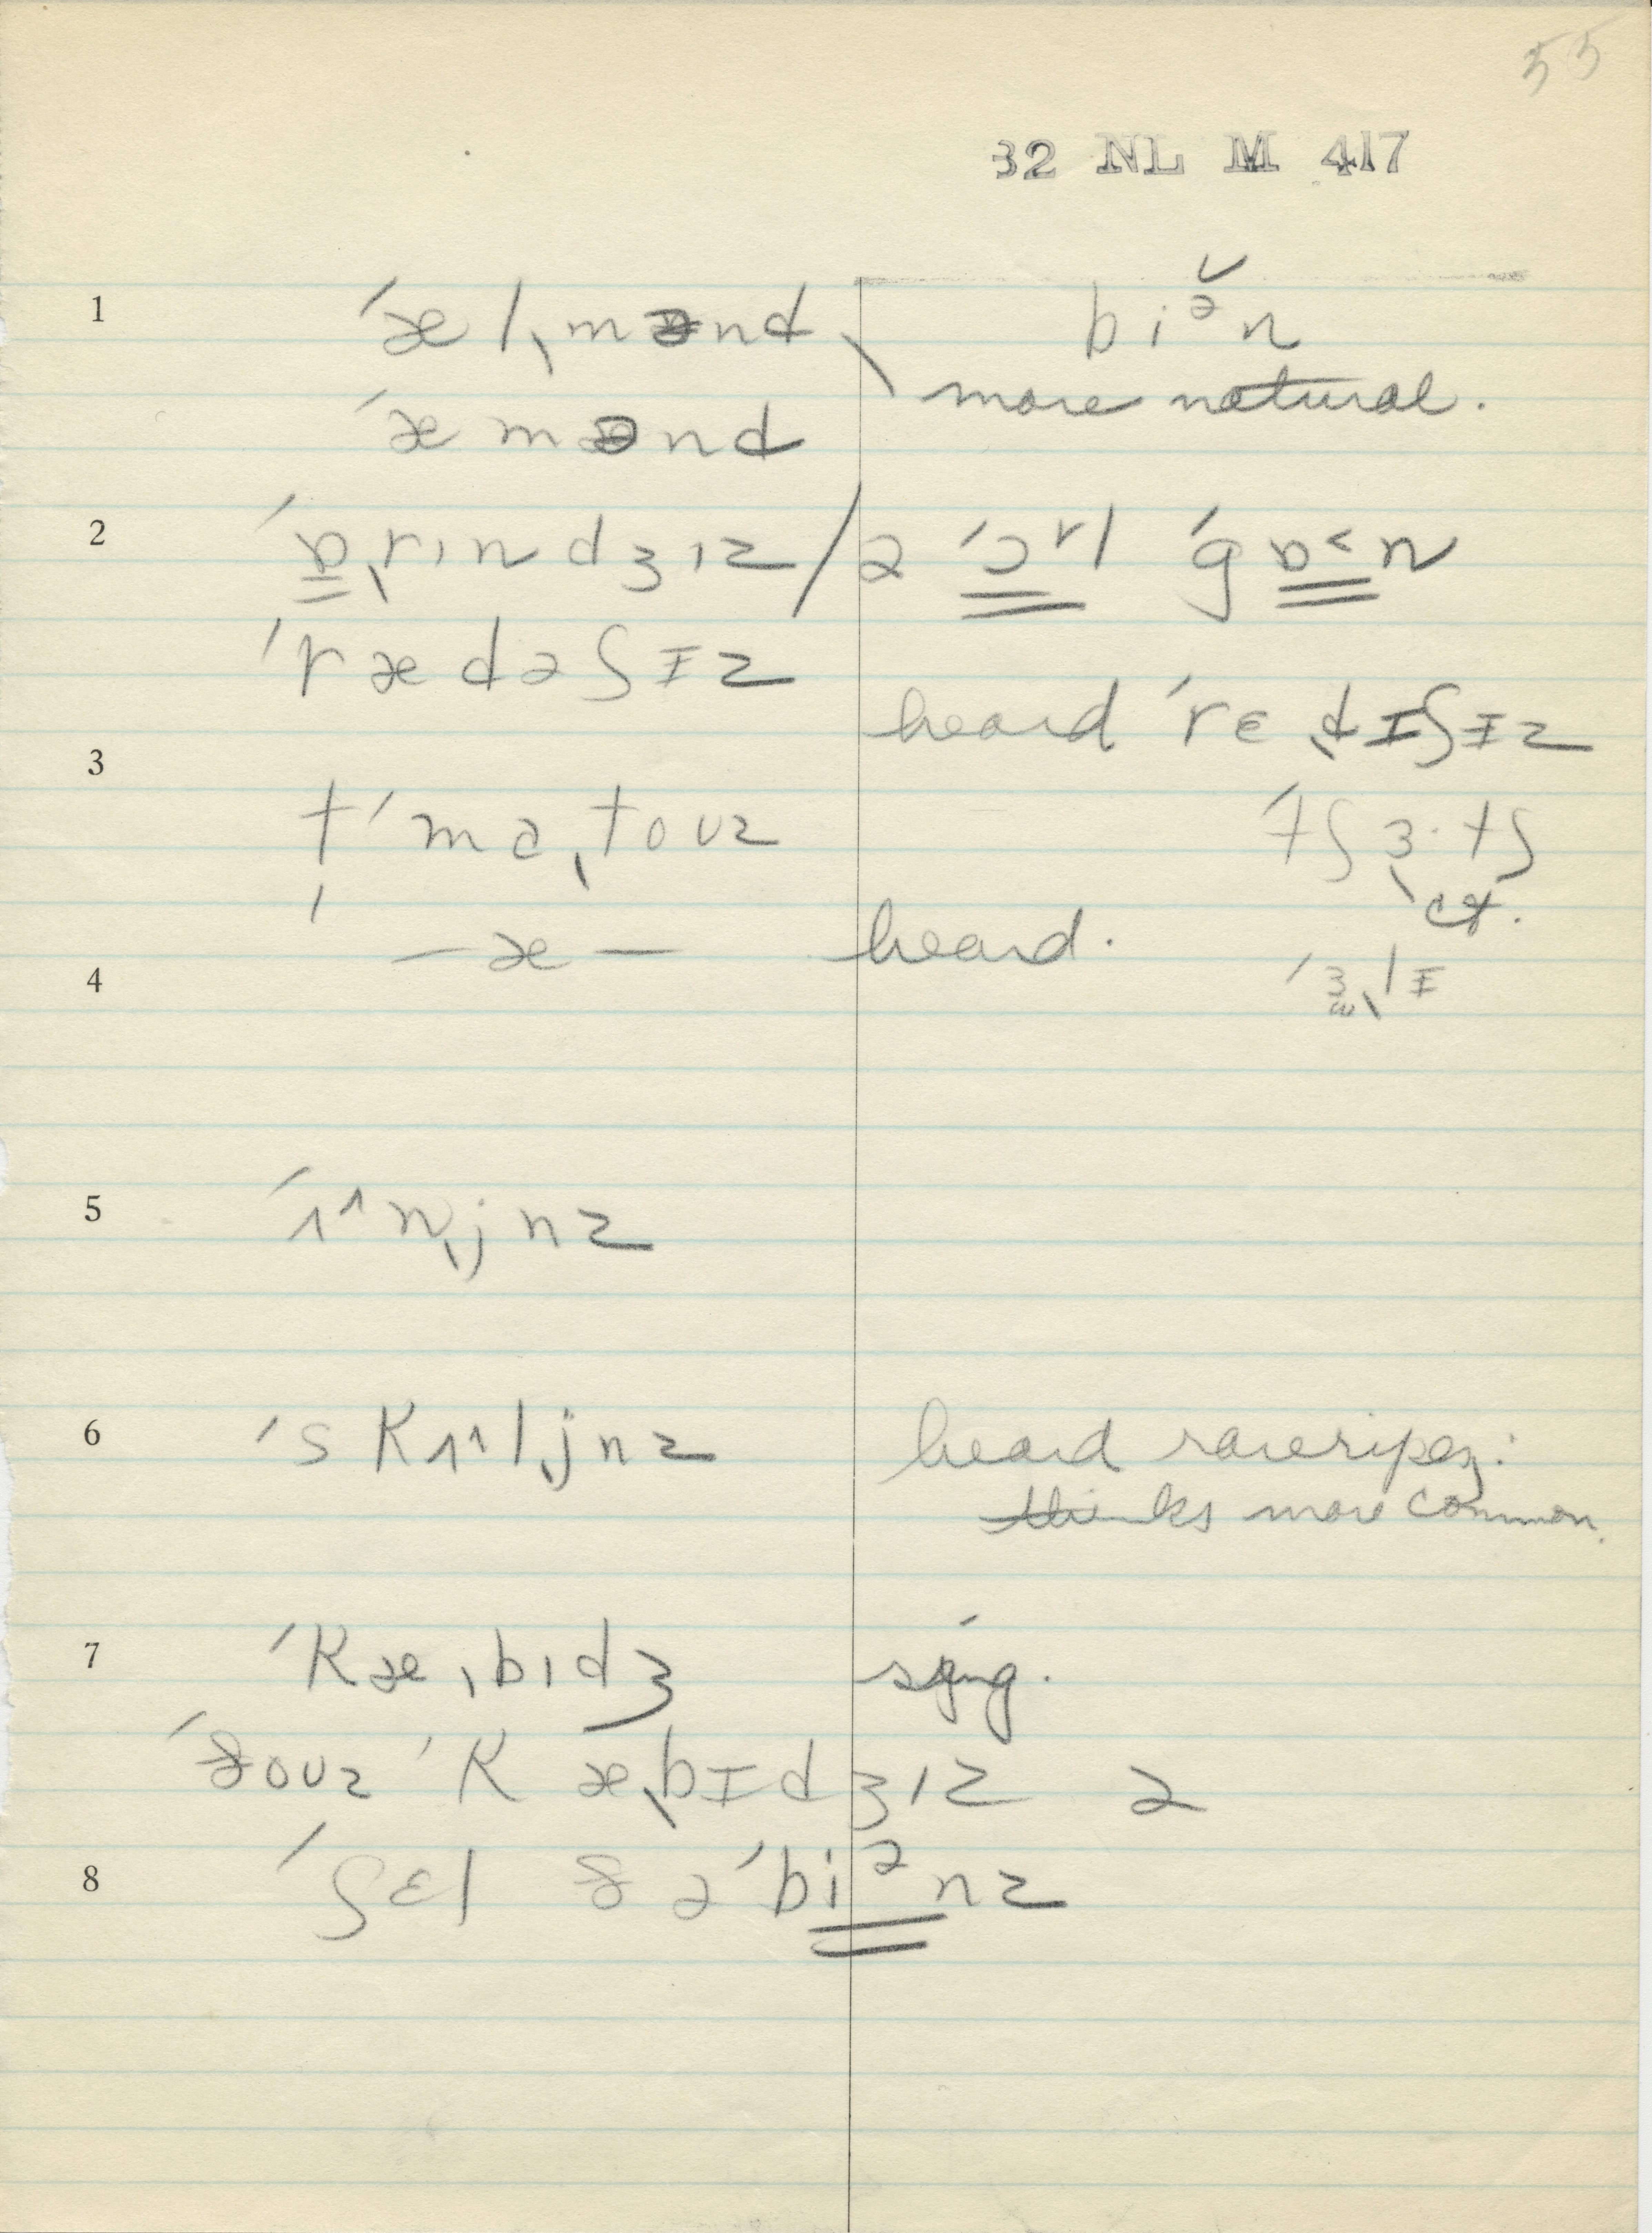 55
32 NL M 417
1 ˈæl ˌmənd bi ə̌ n
ˈæmənd more natural.
2 ˈɒˌrɪndʒɪz / ə ˈɔʳl ˈgɒ˂n
ˈrædəʃɪz
heard ˈrɛˌdɪʃɪz
3
tˈmɑˌtoʊz ˈtʃɜ·tʃ
ˌcf.
— æ — heard.
4 ˈɜˌlɪ
5 ˈʌ^nˌjnz
6 ˈskʌ^lˌjnz heard rareripes:
thinks more common.
7 ˈkæˌbɪdʒ sing.
ˈðoʊz ˈkæˌbɪdʒɪz ə
8 ˈʃɛl ðə ˈbiᵊnz